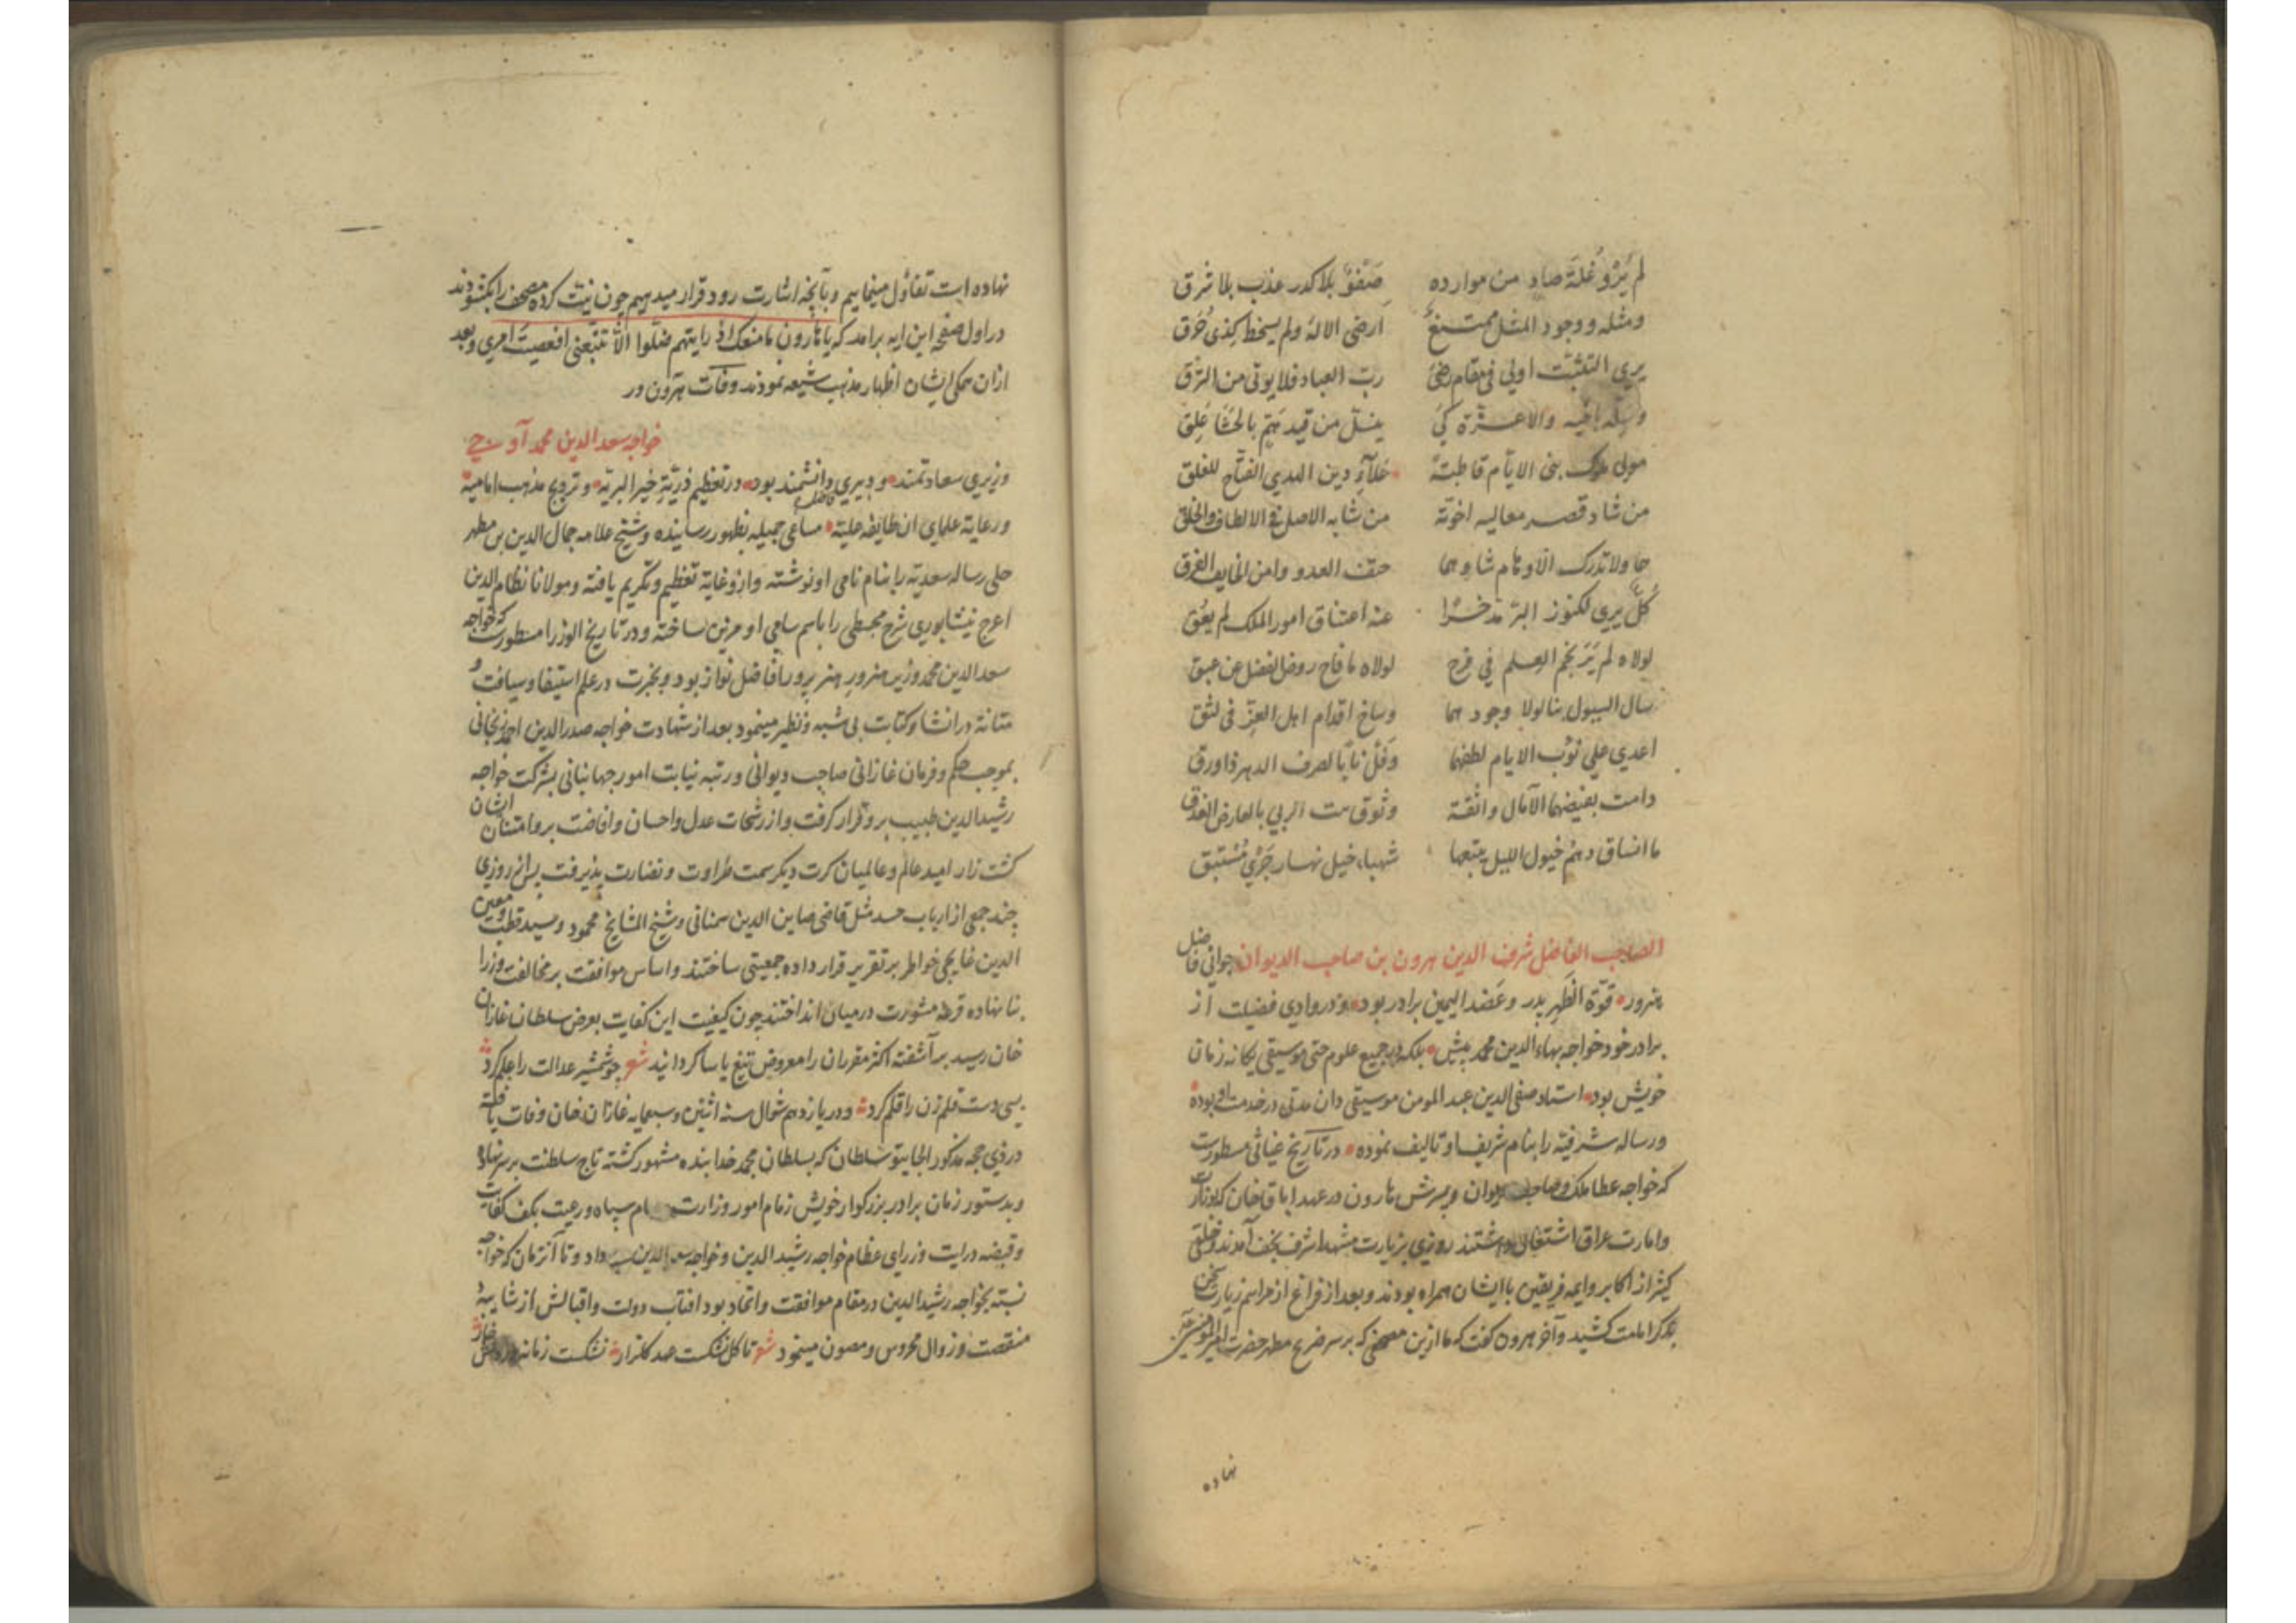 لم يَرْوِ غُلّة صاد من موارده صَفْوٌ بلا كدر عذب بلا شرق
ومثله ووجود المثل ممتنعٌ ارضى الاله ولم يسخط كذى خُرُق
يرى التثبّت اولى فى مقام رضىً ربّ العباد فلا يوتى من النزق
والاعـــزّة كَىْ ينسلّ من قيد همّ بالحَشَا عَلِق
مولى ملوك بنى الايّام قاطبةً دين الهدى الفتّاح للغلق
من شاد قصر معاليه اخوته من شابه الاصل فى الالطاف والخلق
ولا تدرك الاوهام شاوهما حتف العدو وامن الخايف الفرق
كلٌّ يرى لكنوز البرّ مدّخرًا عنه اعتناق امور الملك لم يعُق
لولاه لم يَرَ نجم العلم فى فرح لولاه ما فاح روض الفضل عن عبق
سال السيول بنا لولا وجودهما وساخ اقدام اهل العزّ فى لثق
اعدى على نُوَب الايام لطفهما وفلّ نابًا لصرف الدهر ذا ورق
دامت بفيضهما الآمال واثقة وثوق نبت الربى بالعارض الغدق
ما انساق دهم خيول الليل يتبعها شهباء خيل نهار جَرْىَ مُسْتبق
الصاحب الفاضل شرف الدين هرون بن صاحب الديوان جوانى فاضل
هنرور قوّة الظهر پدر وعَضد اليمين برادر بود ودر وادى فضيلت از
برادر خود خواجه بهاء الدين محمد بيش بلكه در جميع علوم حتى موسيقى يكانه زمان
خويش بود استاد صفى الدين عبد المومن موسيقى دان مدتى در خدمت او بوده
ورساله شرفيّه را بنام شريف او تاليف نموده در تاريخ غياثى مسطورست
كه خواجه عطا ملك وصاحب ديوان وپسرش هارون در عهد اباقا خان كه وزارت
وامارت عراق اشتغال داشتند روزى بزيارت مشهد اشرف نجف آمدند وخلقى
كثير از اكابر وايمه فريقين با ايشان همراه بودند وبعد از فراغ از مراسم زيارت سخن
بذكر امامت كشيد وآخر هرون كفت كه ما ازين مصحفى كه بر سر ضريح مطهر حضرت امير المومنين
نهاده
نهاده است تفاؤل مينماييم وبآنچه اشارت رود قرار ميدهيم چون نيّت كرده مصحف را بكشودند
در اول صفحه اين ايه برآمد كه يا هارون ما منعك اذ رايتهم ضلّوا الّا تتّبعنى افعصيت امرى وبعد
ازان همكى ايشان اظهار مذهب شيعه نمودند وفات هرون در
خواجه سعد الدين محمد آوجى
وزيرى سعادتمند و دبيرى دانشمند بود در تعظيم ذريّة خير البريّة وترويج مذهب اماميّه
ورعاية علماى ان طايفه عليّة مساعى جميله بظهور رسانيده وشيخ علامه جمال الدين بن مطهر
حلى رساله سعديّه را بنام نامى او نوشته وازو غاية تعظيم وتكريم يافته ومولانا نظام الدين
اعرج نيشابورى شرح مجسطى را باسم سامى او مزين ساخته ودر تاريخ الوزرا مسطورست كه خواجه
سعد الدين محمد وزير هنرور هنر پرور افاضل نواز بود وبخبرت در علم استيفا وسياقت و
متانة در انشا وكتابت بى شبه ونظير مينمود بعد از شهادت خواجه صدر الدين احمد زنجانى
بموجب حكم وفرمان غازانى صاحب ديوانى ورتبه نيابت امور جهانبانى بشركت خواجه
رشيد الدين طبيب برو قرار كرفت واز رشحات عدل واحسان وافاضت بر وامتنان ايشان
كشت زار اميد عالم وعالميان كرت ديكر سمت طراوت ونضارت پذيرفت پس از روزى
چند جمعى از ارباب حسد مثل قاضى صاين الدين سمنانى وشيخ المشايخ محمود وسيد قطب ومعين
الدين غايجى خواطر بر تقرير قرار داده جمعيتى ساختند واساس موافقت بر مخالفت وزرا
بنا نهاده قرعه مشورت در ميان انداختند چون كيفيت اين كفايت بعرض سلطان غازان
خان رسيد برآشفته اكثر مقرران را معروض تيغ ياسا كردانيد شعر چو شمشير عدالت را علم كرد
بسى دست قلم زن را قلم كرد ودر يازدهم شوال سنه اثنين وسبعمايه غازان خان وفات يافته
در ذى حجه مذكور الجايتو سلطان كه بسلطان محمد خدابنده مشهور كشته تاج سلطنت بر سر نهاد
وبدستور زمان برادر بزركوار خويش زمام امور وزارت سپاه ورعيت بكف كفايت
وقبضه درايت وزراى عظام خواجه رشيد الدين وخواجه سعد الدين سپرد داد وتا آنزمان كه خواجه
نسبته بخواجه رشيد الدين در مقام موافقت واتحاد بود افتاب دولت واقبالش از شايبه
منقصت وزوال محروس ومصون مينمود شعر تا كل نشكست عهد كلزار نشكست زمانه